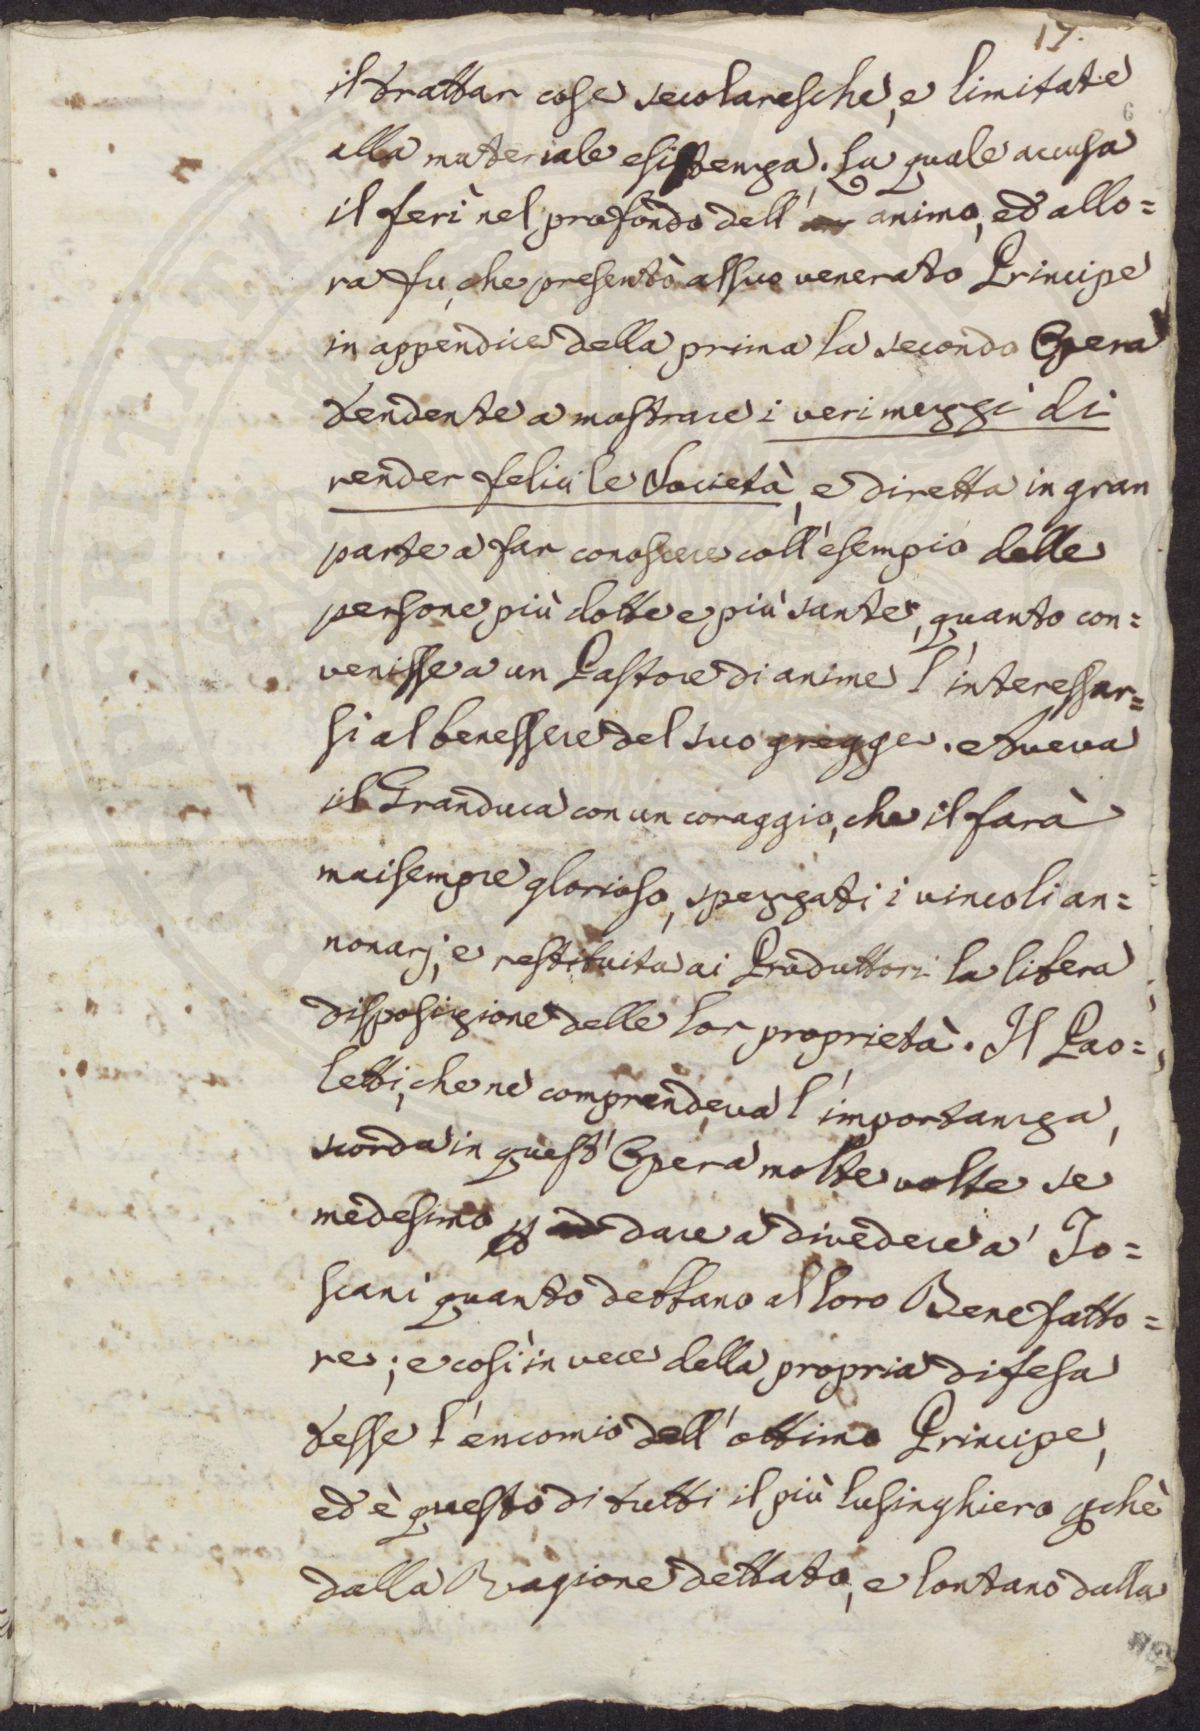 17.
6
il trattar cose secolaresche, e limitate
alla materiale esistenza. La quale accusa
il ferì nel profondo dell' animo, ed allo=
ra fu, che presentò al suo venerato Principe
in appendice della prima la seconda Opera
tendente a mostrare i veri mezzi di
render felici le Società, e diretta in gran
parte a far conoscere coll' esempio delle
persone più dotte e più sante, quanto con=
venisse a un Pastore di anime l' interessar=
si al benessere del suo gregge. Aveva
il Granduca con un coraggio, che il farà
maisempre glorioso, spezzati i vincoli an=
nonarj, e restituita ai Produttori la libera
disposizione delle lor proprietà. Il Pao=
letti, che ne comprendeva l' importanza,
scorda in quest' Opera molte volte se
medesimo p dare a divedere a' To=
scani quanto debbano al loro Benefatto=
re; e così in vece della propria difesa
tesse l' encomio dell' ottimo Principe,
ed è questo di tutti il più lusinghiero pchè
dalla Ragione dettato, e lontano dalla